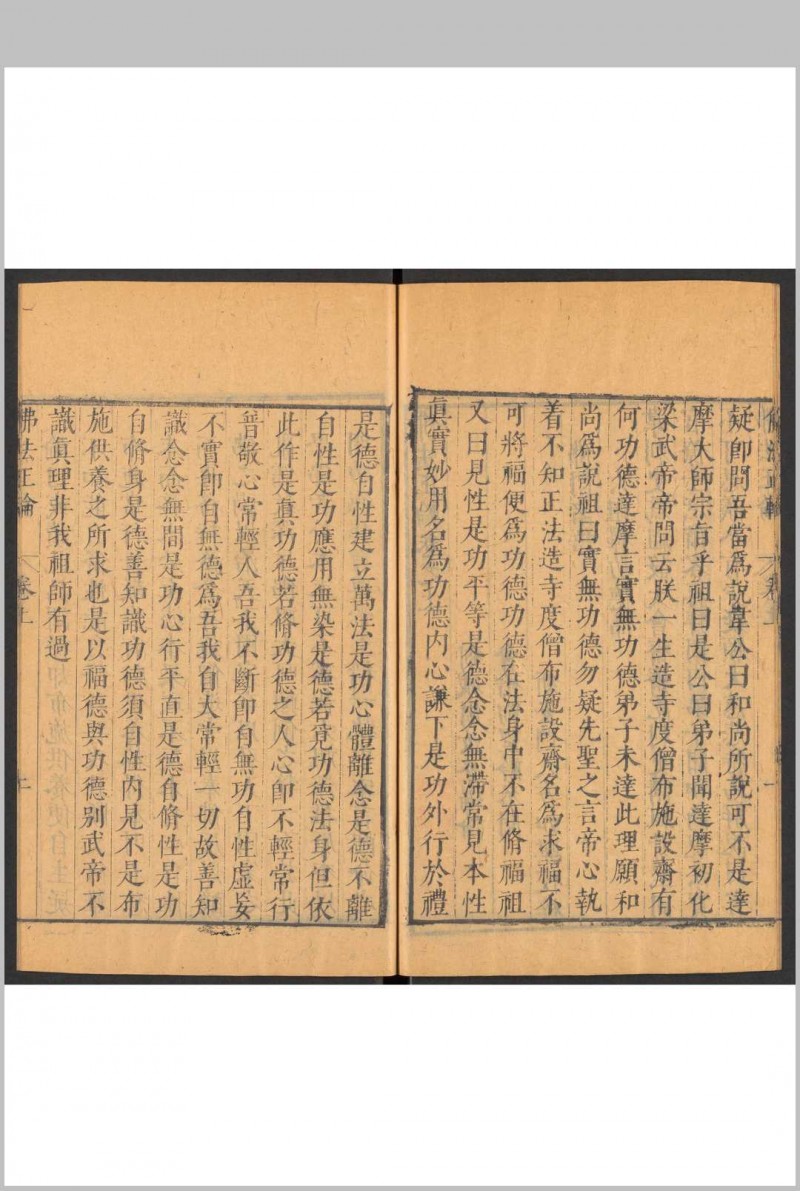 疑卽問吾當爲說韋公曰和尚所說可不是達
摩大師宗旨乎祖曰是公曰弟子聞達摩初化
梁武帝帝問云朕一生造寺度僧布施設齋有
何功德達摩言實無功德弟子未達此理願和
尚爲說祖曰實無功德勿疑先聖之言帝心執
着不知正法造寺度僧布施設齋名爲求福不
可將福便爲功德功德在法身中不在脩福祖
又曰見性是功平等是德念念無滯常見本性
眞實妙用名爲功德內心謙下是功外行於禮
是德自性建立萬法是功心體離念是德不離
自性是功應用無染是德若覓功德法身但依
此作是眞功德若脩功德之人心卽不輕常行
普敬心常輕人吾我不斷卽自無功自性虛妄
不實卽自無德爲吾我自大常輕一切故善知
識念念無間是功心行平直是德自脩性是功
自脩身是德善知識功德須自性內見不是布
施供養之所求也是以福德與功德别武帝不
識眞理非我祖師有過
佛法正論
卷上